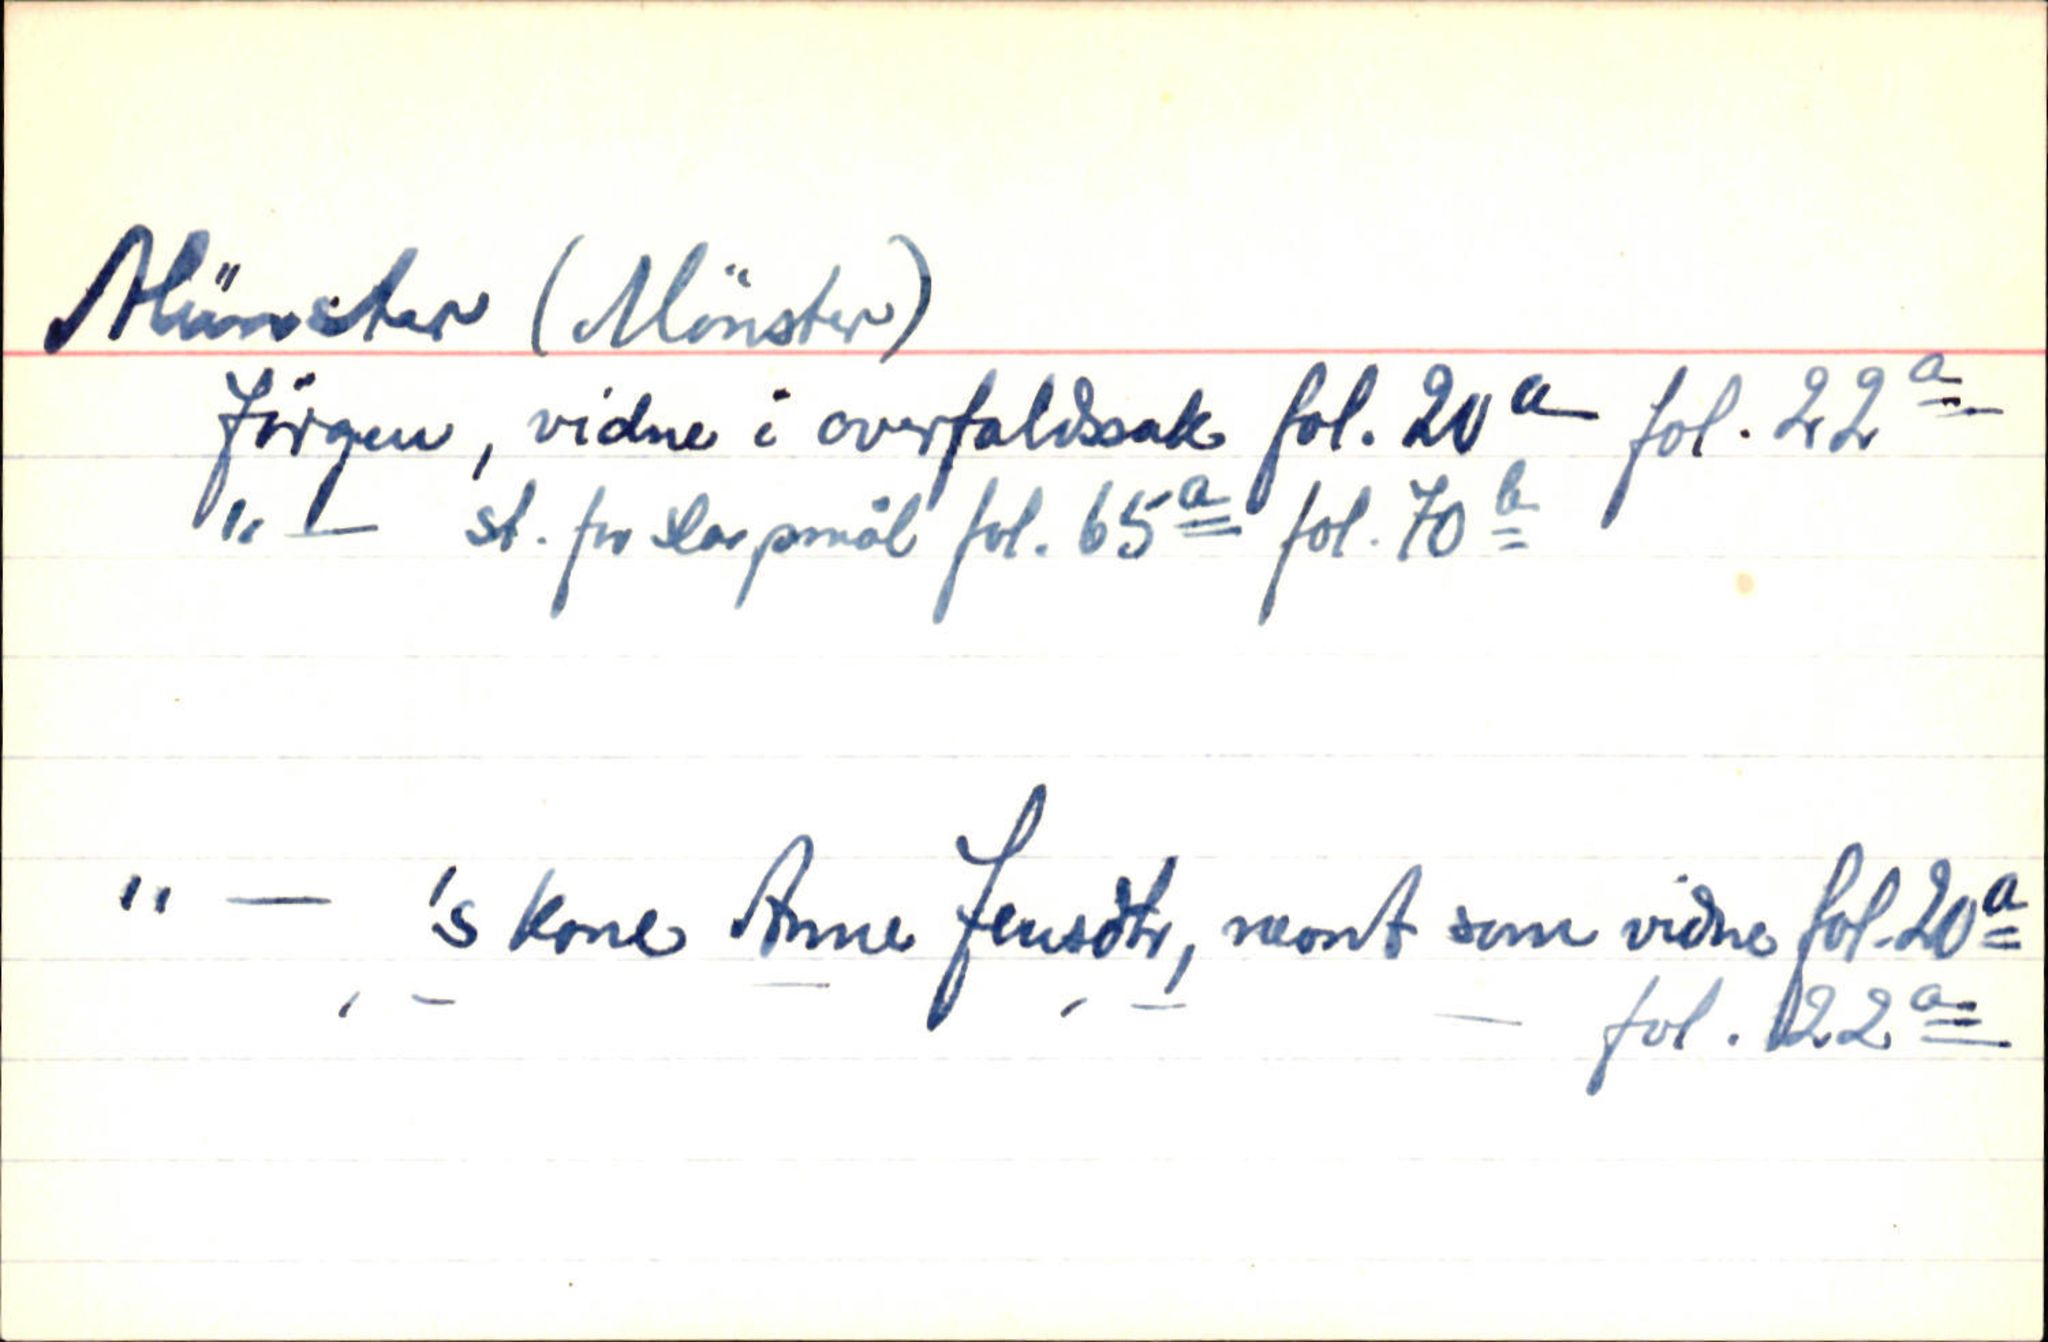 Münster (Mönster)
Jörgen, vidne i overfaldssak fol. 20a fol. 22a
" — st. for slagsmål fol. 65a fol. 70b
" — 's kone Anne Jensdtr, nevnt som vidne fol. 20a
, — — , — — fol. 22a